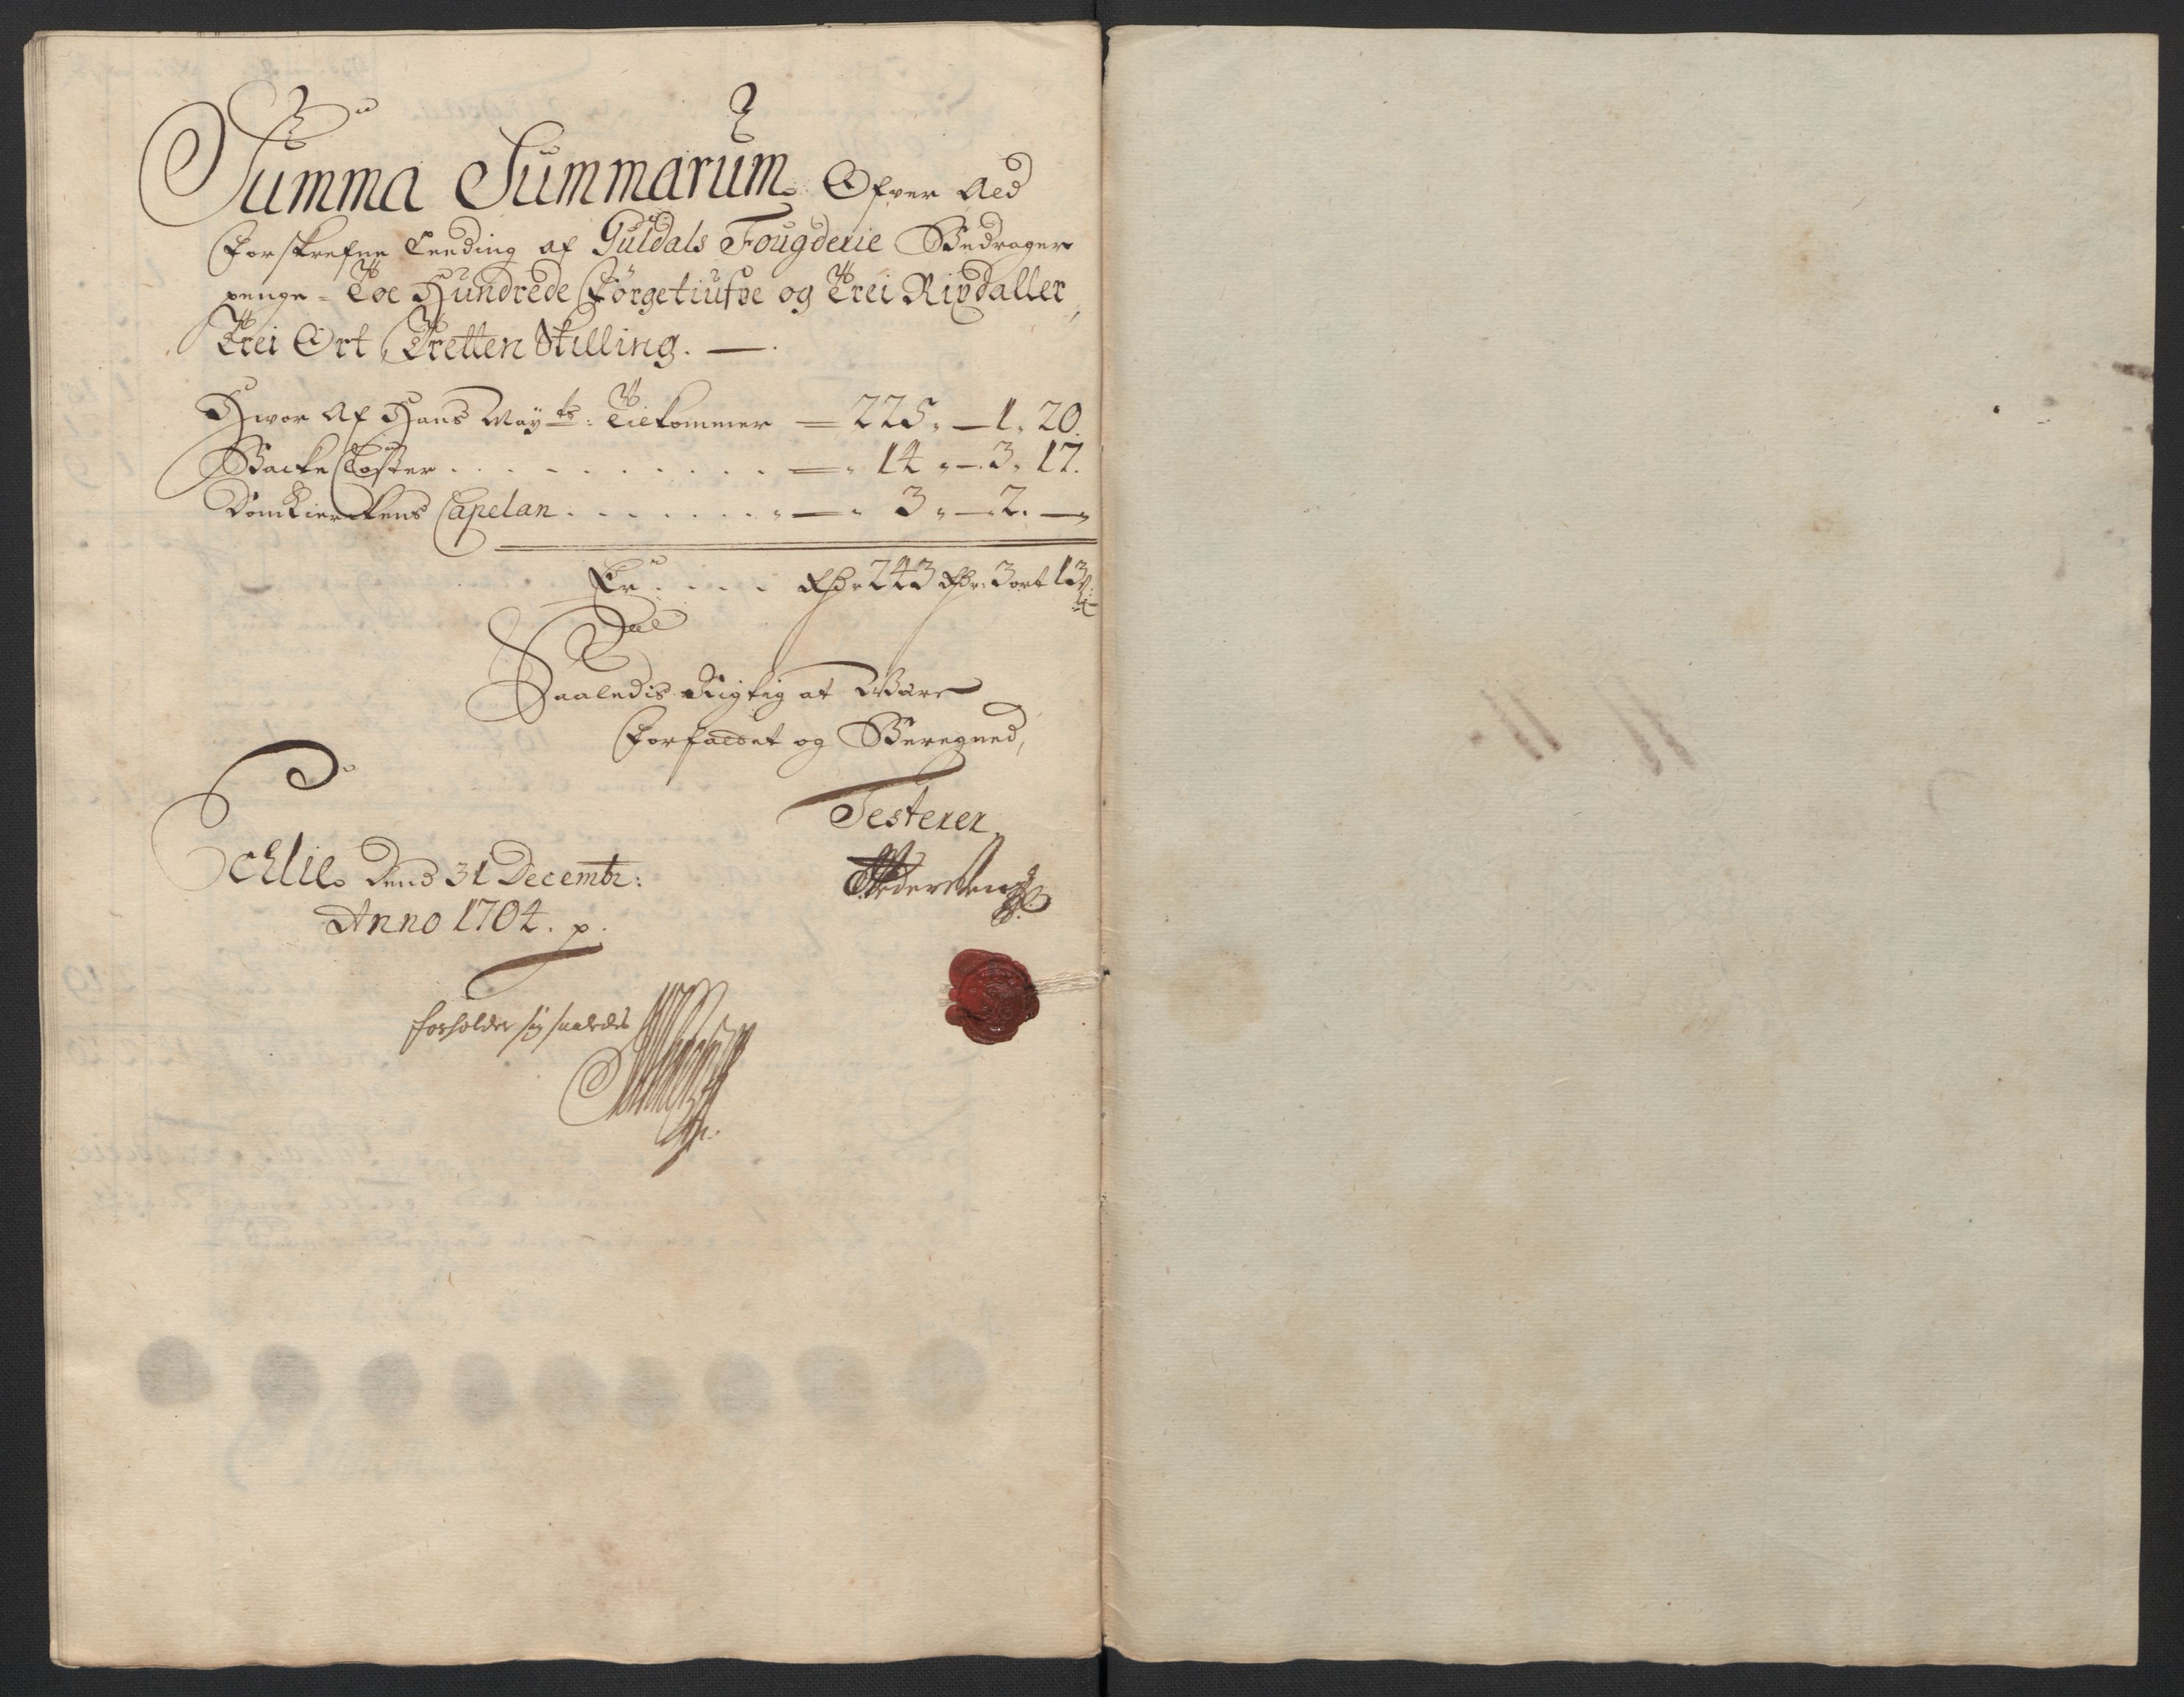 Summa Summarum Ofver Ald
Forskrefne Tending af Guldals Fougderie Bedrager
penge = Toe Hundrede Förgetiufve og Trei Rixdaller,
Trei Ort, Tretten Skilling. —
Hvor Af Hans Maÿts: Tilkommer — 225. — 1. 20.
Backe Closter . . . . . . . . — 14. — 3. 17.
Domkierckens Capelan . . . . . . . — 3. — 2. —
Er . . . . Rdr 243 Rdr: 3 ort 13 s:
Saaledis Rigtig at Være
Forfaldet og Beregned,
Testerer
Dend 31 Decembr:
Anno 1704. p.
forholder sig saaledes